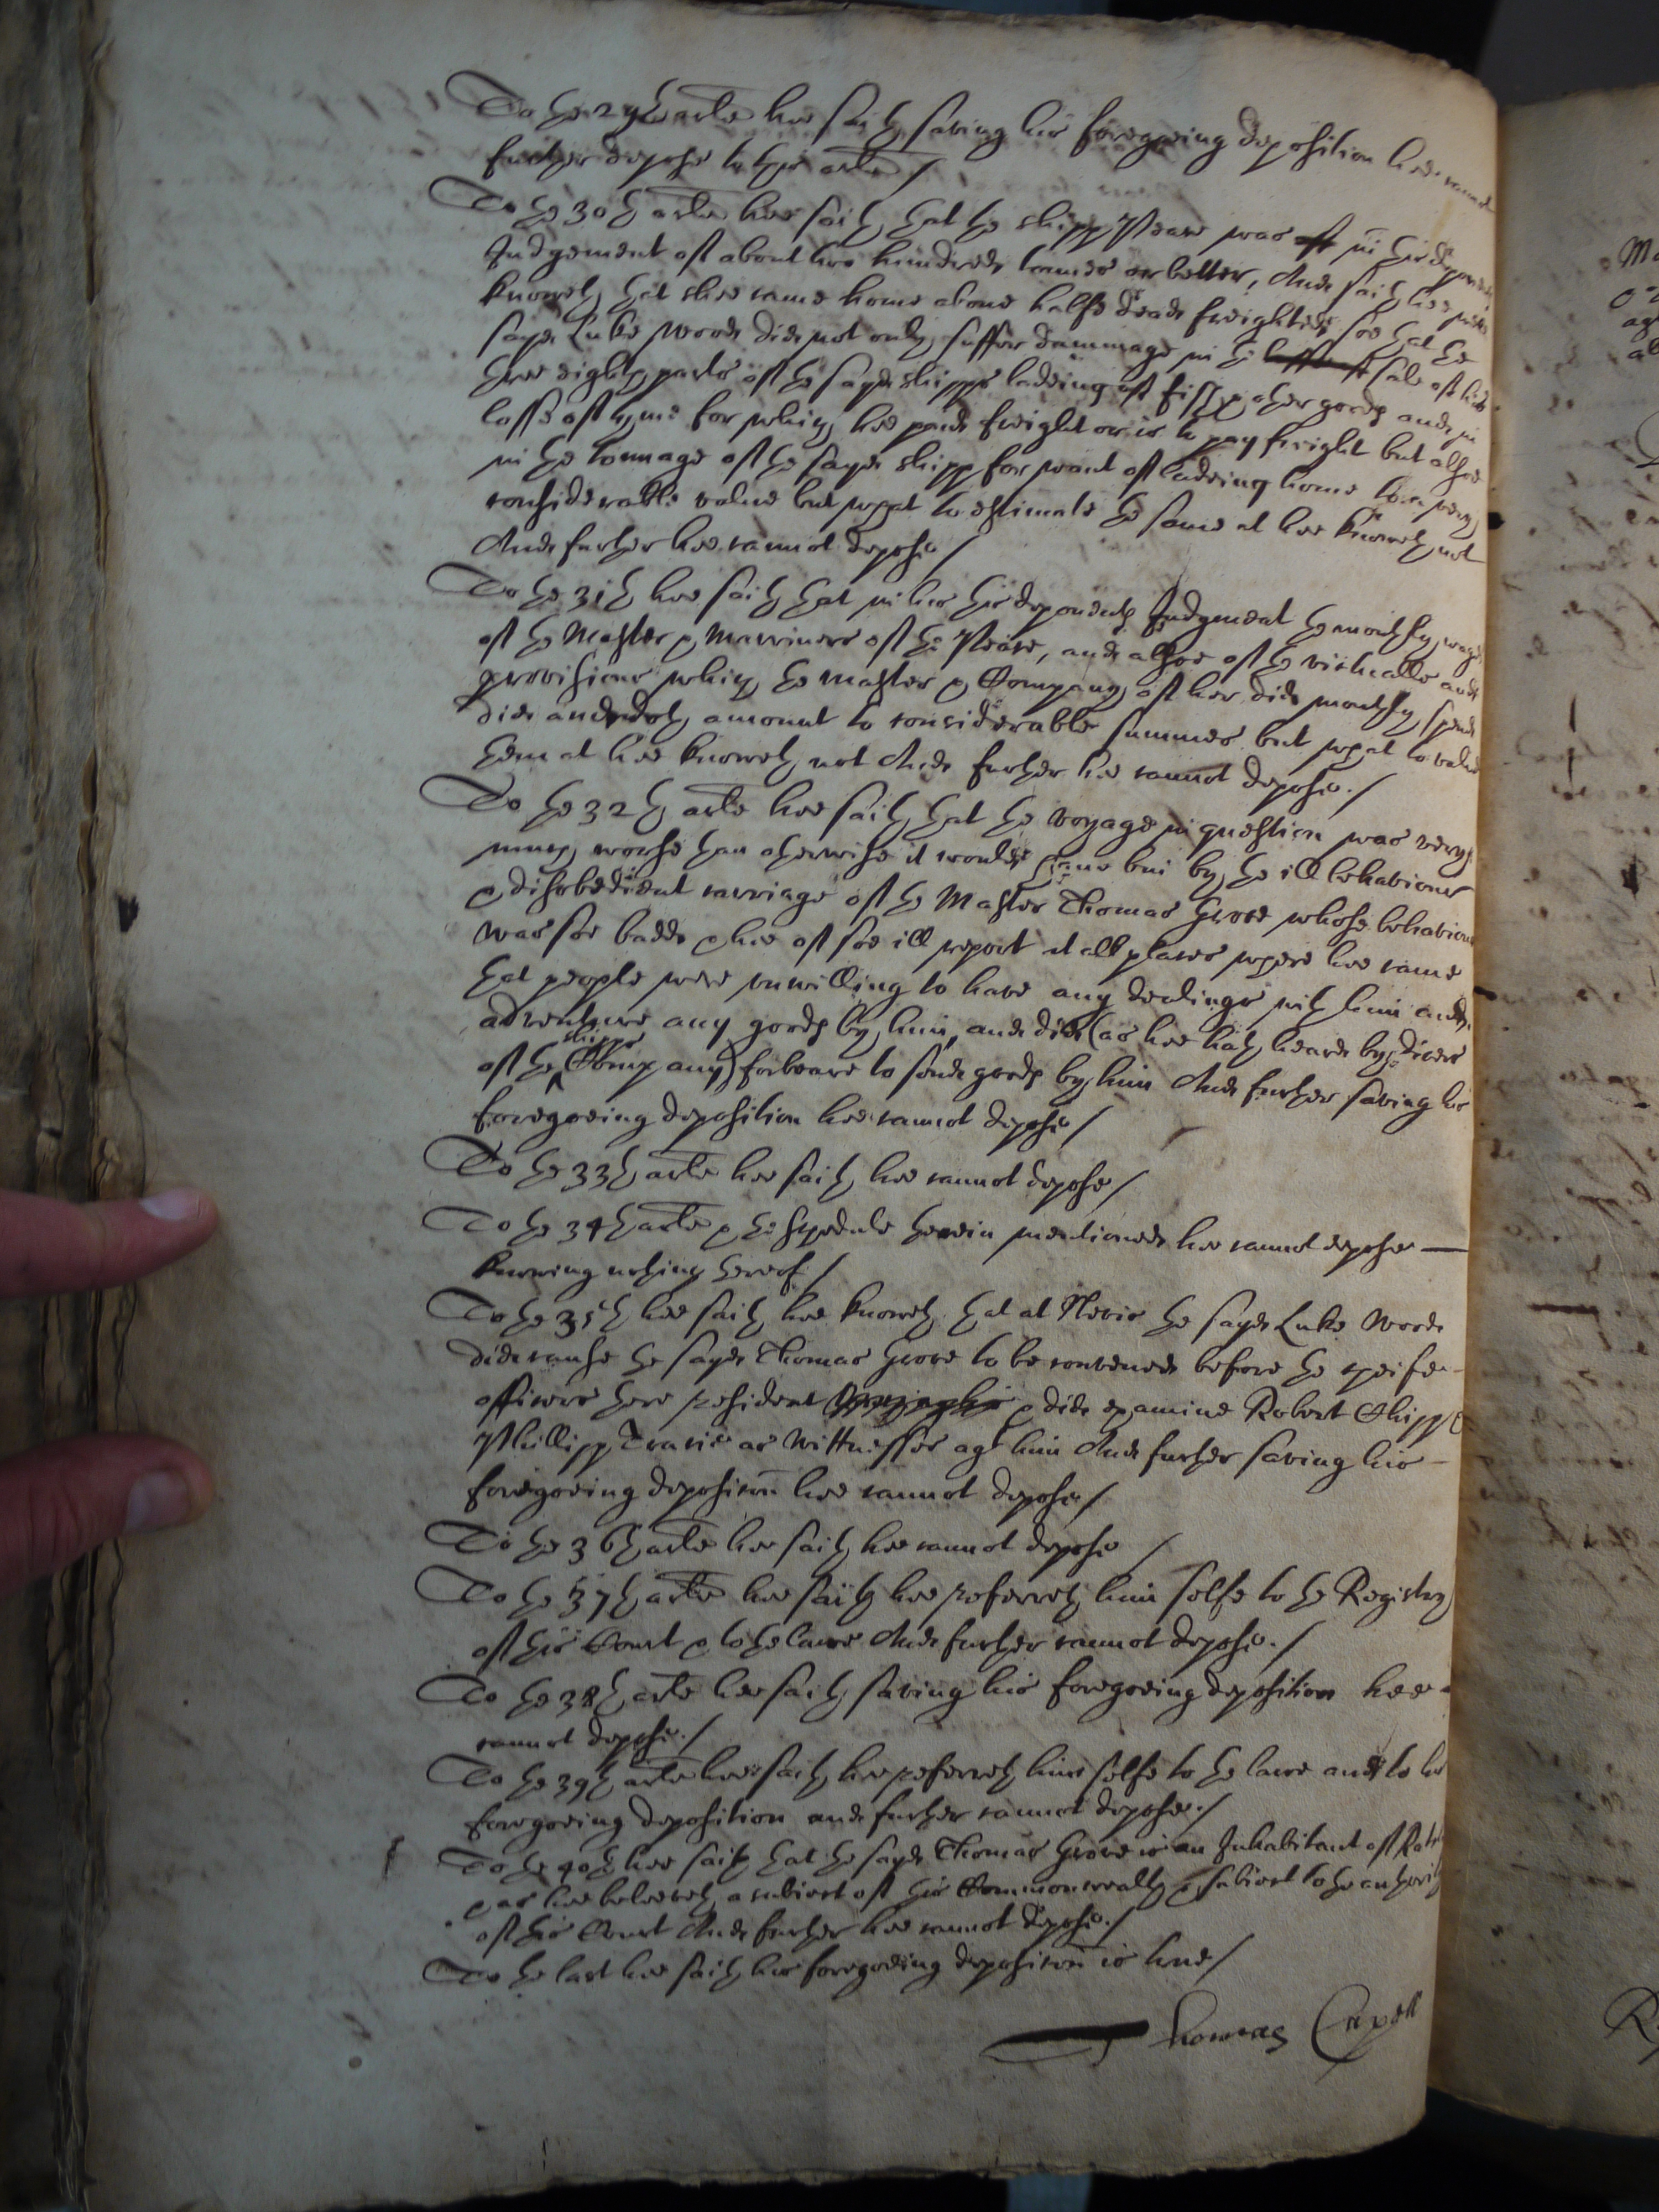 To the 29th arle hee saith saving his foregoeing deposition hee cannot
further depose to this arle /
To the 30th arle hee saith that the shipp Peare was in this deponents
Judgement of about two hundred tonnes or better, And saith hee
knoweth that shee came home above halfe dead freighted soe that the
sayd Luke Wood did not only suffer dammage in the sale of
three eight parts of the sayd shipps ladeing of fish & other goods and in
losse of tyme for which hee payd freight or is to pay freight but alsoe
in the tonnage of the sayd shipp for want of ladeing home to a very
considerable value but what to estimate the same at hee knoweth not
And further hee cannot depose /
To the 31th hee saith that in his this deponents Judgment the monthly wages
of the Master & Marriners of the Peare, and alsoe of the victualls and
provisions which the master & Company of her did monthly spend
did and doth amount to considerable summes but what to value
them at hee knoweth not And further hee cannot depose. /
To the 32th arle hee saith that the voyage in question was very
much worse than otherwise it would have bin by the ill behaviour
& disobedient carriage of the Master Thomas Grove whose behaviour
was soe badd & hee of soe ill report at all places where hee came
that people were unwilling to have any dealings with him and
adventure any goods by him, and did (as hee hath heard by divers
of the shipps Company) forbeare to send goods by him And further saving his
foregoeing deposition hee cannot depose /
To the 33th arle hee saith hee cannot depose /
To the 34th arle & the schedule therein mentioned hee cannot depose —
knowing nothing thereof /
To the 35th hee saith hee knoweth that at Nevis the sayd Luke Wood
did cause the sayd Thomas Grove to be convened before the cheife
officers there resident & did examine Robert Chipp &
Phillipp Travis as Wittnesses agt him And further saving his
foregoeing deposicon hee cannot depose /
To the 36th arle hee saith hee cannot depose /
To the 37th arle hee saith hee referreth him selfe to the Registry
of this Court & to the lawe And further cannot depose. /
To the 38th arle hee saith saving his foregoeing deposition hee
cannot depose. /
To the 39th arle hee saith hee referreth him selfe to the lawe and to his
foregoeing deposition and further cannot depose. /
To the 40th hee saith that the sayd Thomas Grove is an Inhabitant of
& as hee beleeveth a subiect of this Commonwealth & subiect to the authority
of this Court And further hee cannot depose. /
To the last hee saith his foregoeing deposicon is true /
Thomas